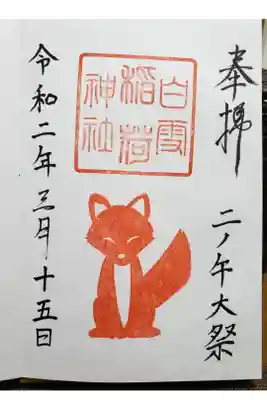 奉拝
二ノ午大祭
白雪
稲荷
神社
令和二年三月十五日